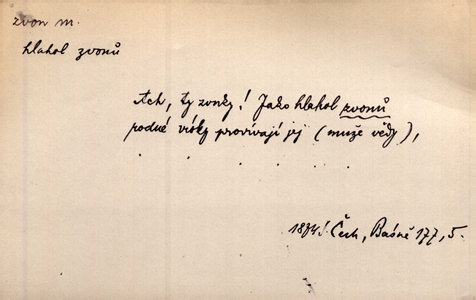 zvon m.
hlahol zvonů
Ach, ty zvuky! Jako hlahol zvonů
rodné vísky provívají jej (muže vědy),
. . . . . .
1874 Čech, Básně 177, 5.